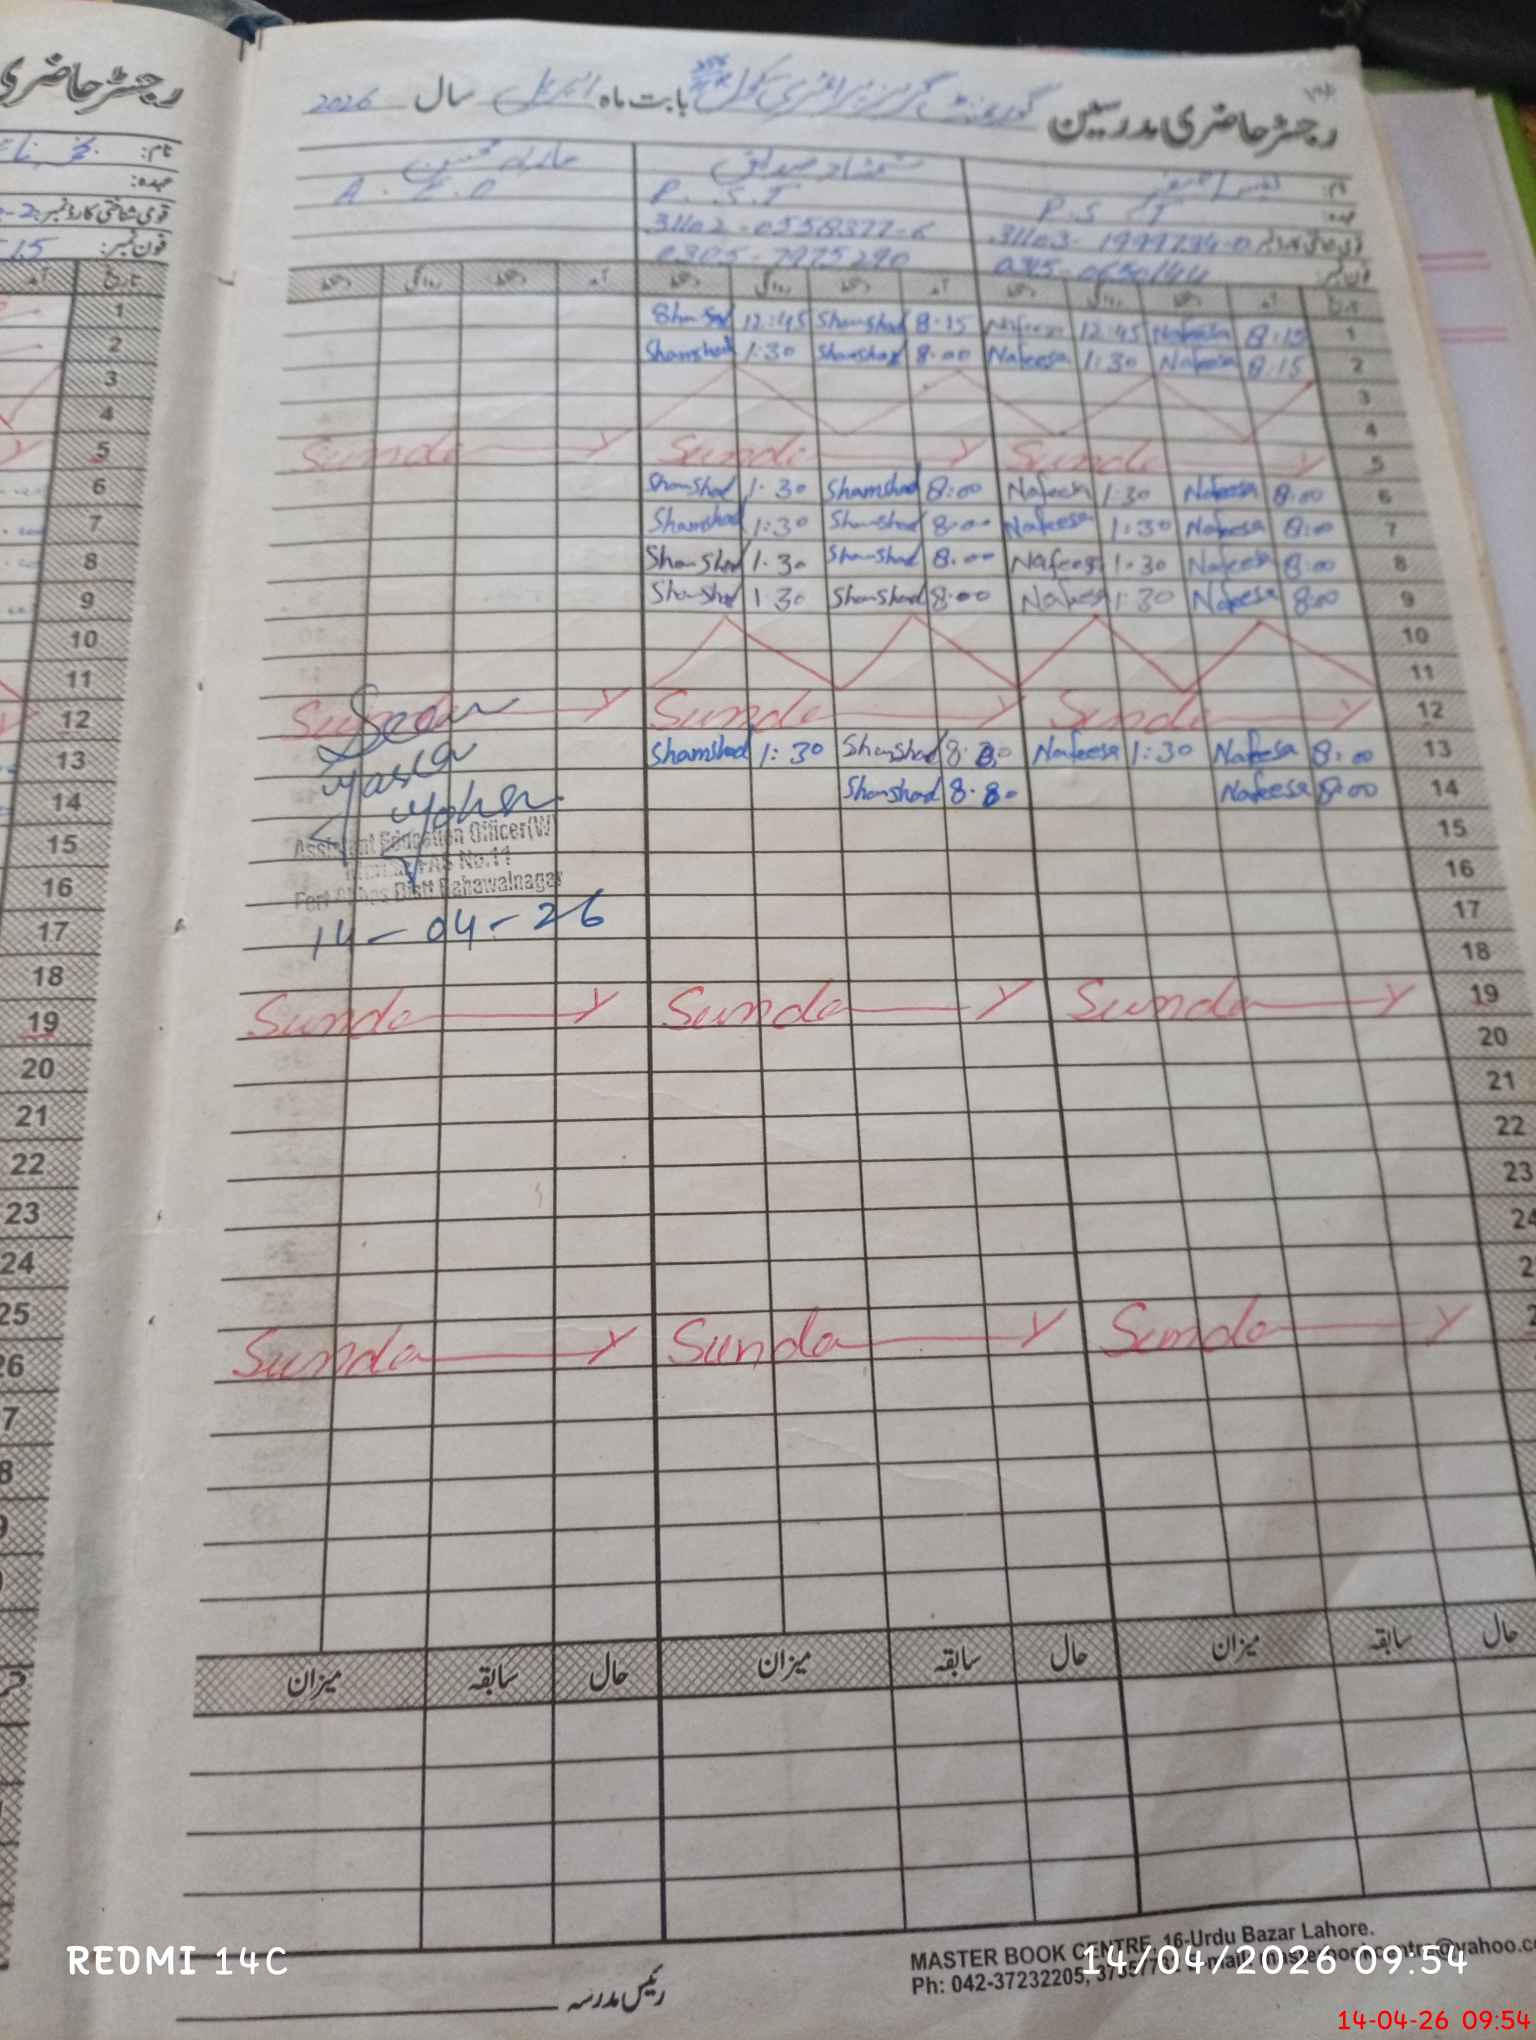 رجسٹر حاضری مدرسین گورنمنٹ گرلز پرائمری سکول بابت ماہ اپریل سال 2026
رجسٹر حاضری
نام: شمشاد صدیق
عہدہ: P.S.T P.S.T A.E.O
قومی شناختی کارڈ نمبر:
فون نمبر:
تاریخ آمد دستخط روانگی دستخط آمد دستخط روانگی دستخط آمد دستخط روانگی دستخط
1 8:15 Nafeesa 12:45 Nafeesa 8:15 Shamshad 12:45 Shamshad 1
2 8:15 Nafeesa 1:30 Nafeesa 8:00 Shamshad 1:30 Shamshad 2
3 3
4 4
5 Sunday Sunday Sunday 5
6 8:00 Nafeesa 1:30 Nafeesa 8:00 Shamshad 1:30 Shamshad 6
7 8:00 Nafeesa 1:30 Nafeesa 8:00 Shamshad 1:30 Shamshad 7
8 8:00 Nafeesa 1:30 Nafeesa 8:00 Shamshad 1:30 Shamshad 8
9 8:00 Nafeesa 1:30 Nafeesa 8:00 Shamshad 1:30 Shamshad 9
10 10
11 11
12 Sunday Sunday Sunday 12
Seen
13 8:00 Nafeesa 1:30 Nafeesa Shamshad 1:30 Shamshad 13
14 8:00 Nafeesa Shamshad 14
Assistant Education Officer(W)
No.11
Fort Abbas Distt Bahawalnagar
14-04-26
15 15
16 16
17 17
18 18
19 Sunday Sunday Sunday 19
20 20
21 21
22 22
23 23
24 24
25
Sunday Sunday Sunday 26
حال سابقہ میزان حال سابقہ میزان حال سابقہ میزان
رئیس مدرسہ
MASTER BOOK CENTRE, 16-Urdu Bazar Lahore.
Ph: 042-37232205,
REDMI 14C
14/04/2026 09:54
14-04-26 09:54